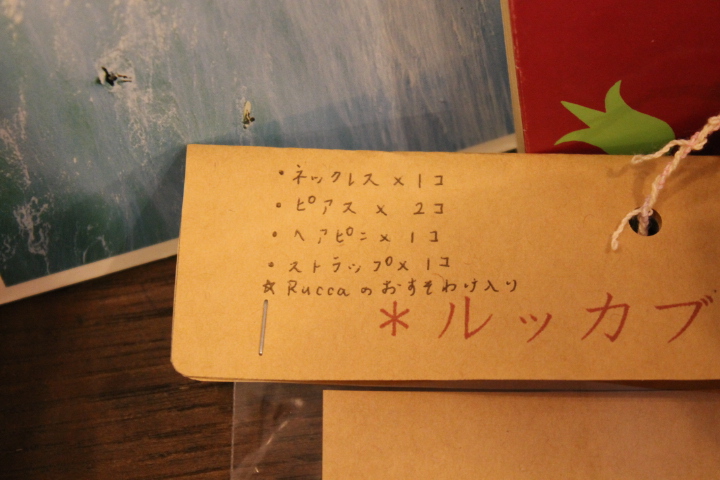 ・ネックレス × 1コ
・ピアス × 2コ
・ヘアピン × 1コ
・ストラップ × 1コ
☆ Ruccaのおすそわけ入り
*ルッカブ